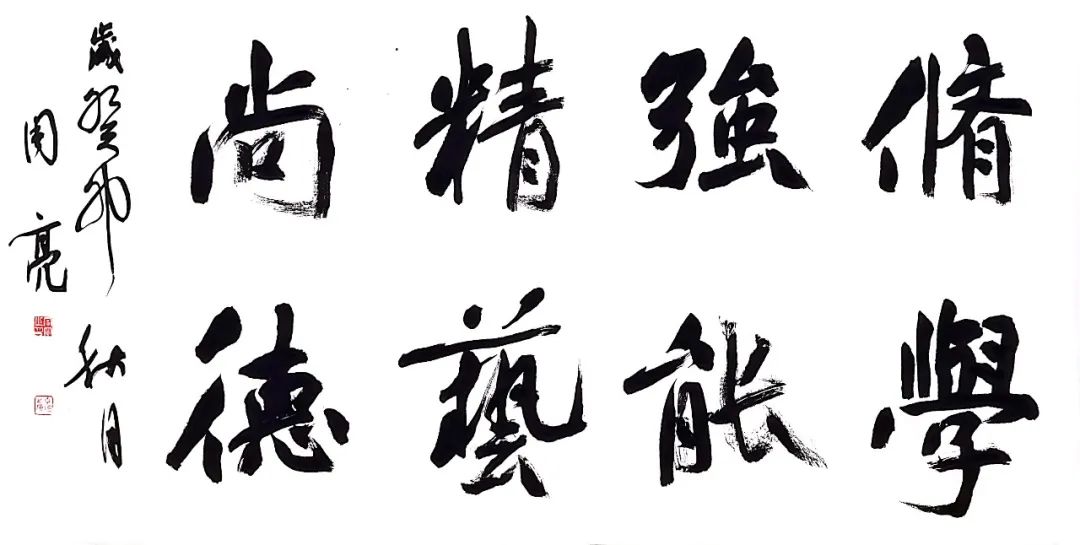 脩學
強能
精藝
尚德
歲癸卯秋月
周亮